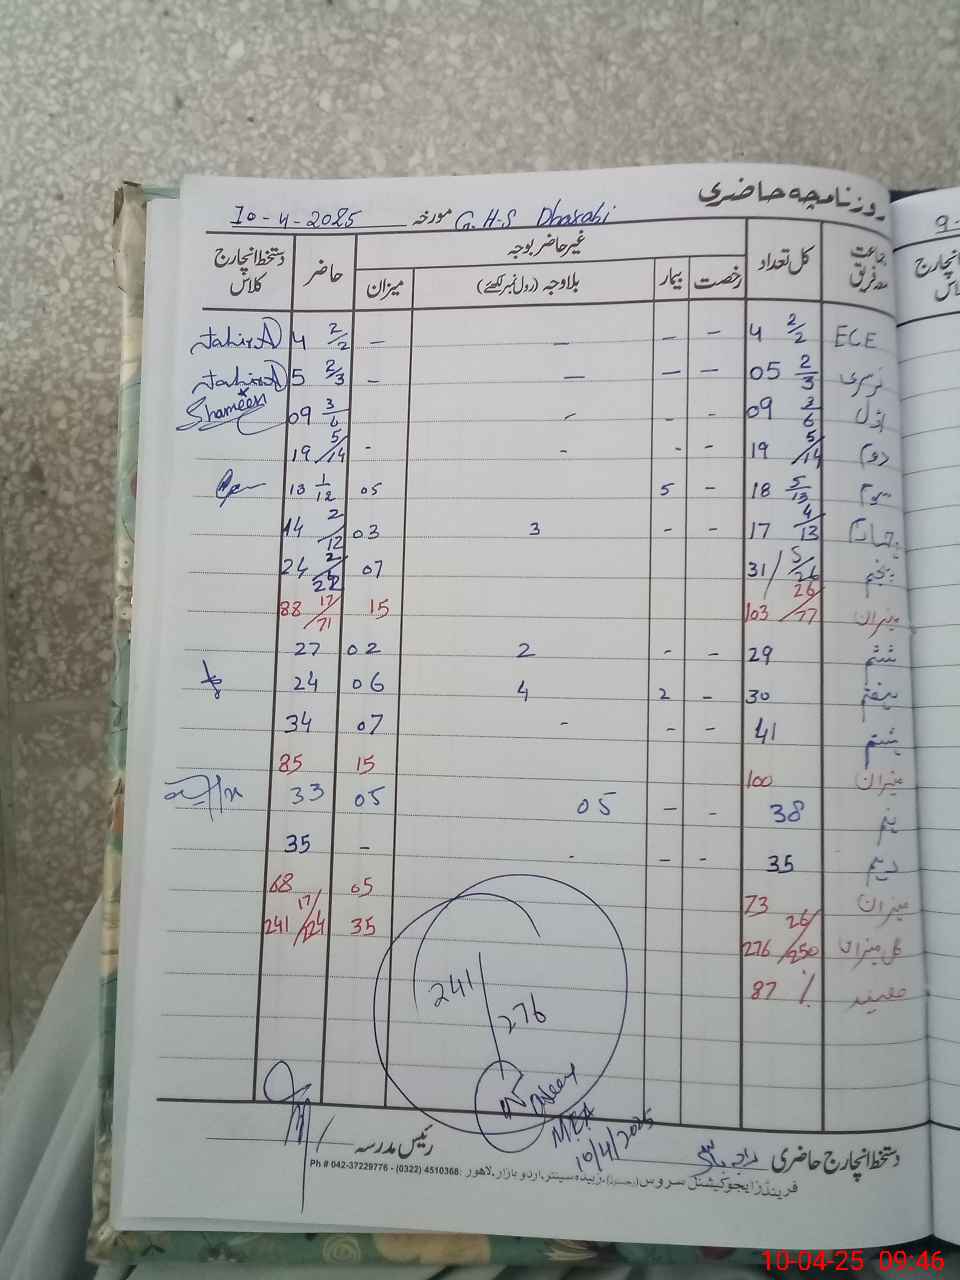 روزنامچہ حاضری
مورخہ G.H.S Dhasahi 10-4-2025
جماعت معہ فریق کل تعداد غیر حاضر بوجہ حاضر دستخط انچارج کلاس
رخصت بیمار بلاوجہ (رول نمبر لکھئے) میزان
ECE 4 2/2 – – – – 4 2/2 Tahira
نرسری 05 2/3 – – – – 5 2/3 Tahira
اوّل 09 3/6 - - - 09 3/6 Shameen
دوم 19 5/14 - - - 19 5/14
سوم 18 5/13 - 5 05 13 1/12
چہارم 17 4/13 - - 3 03 14 2/12
پنجم 31 5/26 07 24 2/22
میزان 103 26/77 15 88 17/71
ششم 29 - - 2 02 27
ہفتم 30 - 2 4 06 24
ہشتم 41 - - - 07 34
میزان 100 15 85
نہم 38 - - 05 05 33
دہم 35 - - - - 35
میزان 73 05 68
کل میزان 276 26/250 35 241 17/224
فیصد 87 %
241/276
MEA
10/4/2025
دستخط انچارج حاضری رئیس مدرسہ
فرینڈز ایجوکیشنل سروس (رجسٹرڈ) زبیدہ سینٹر، اردو بازار، لاہور Ph # 042-37229776 - (0322) 4510368:
9-
انچارج
کلاس
10-04-25 09:46